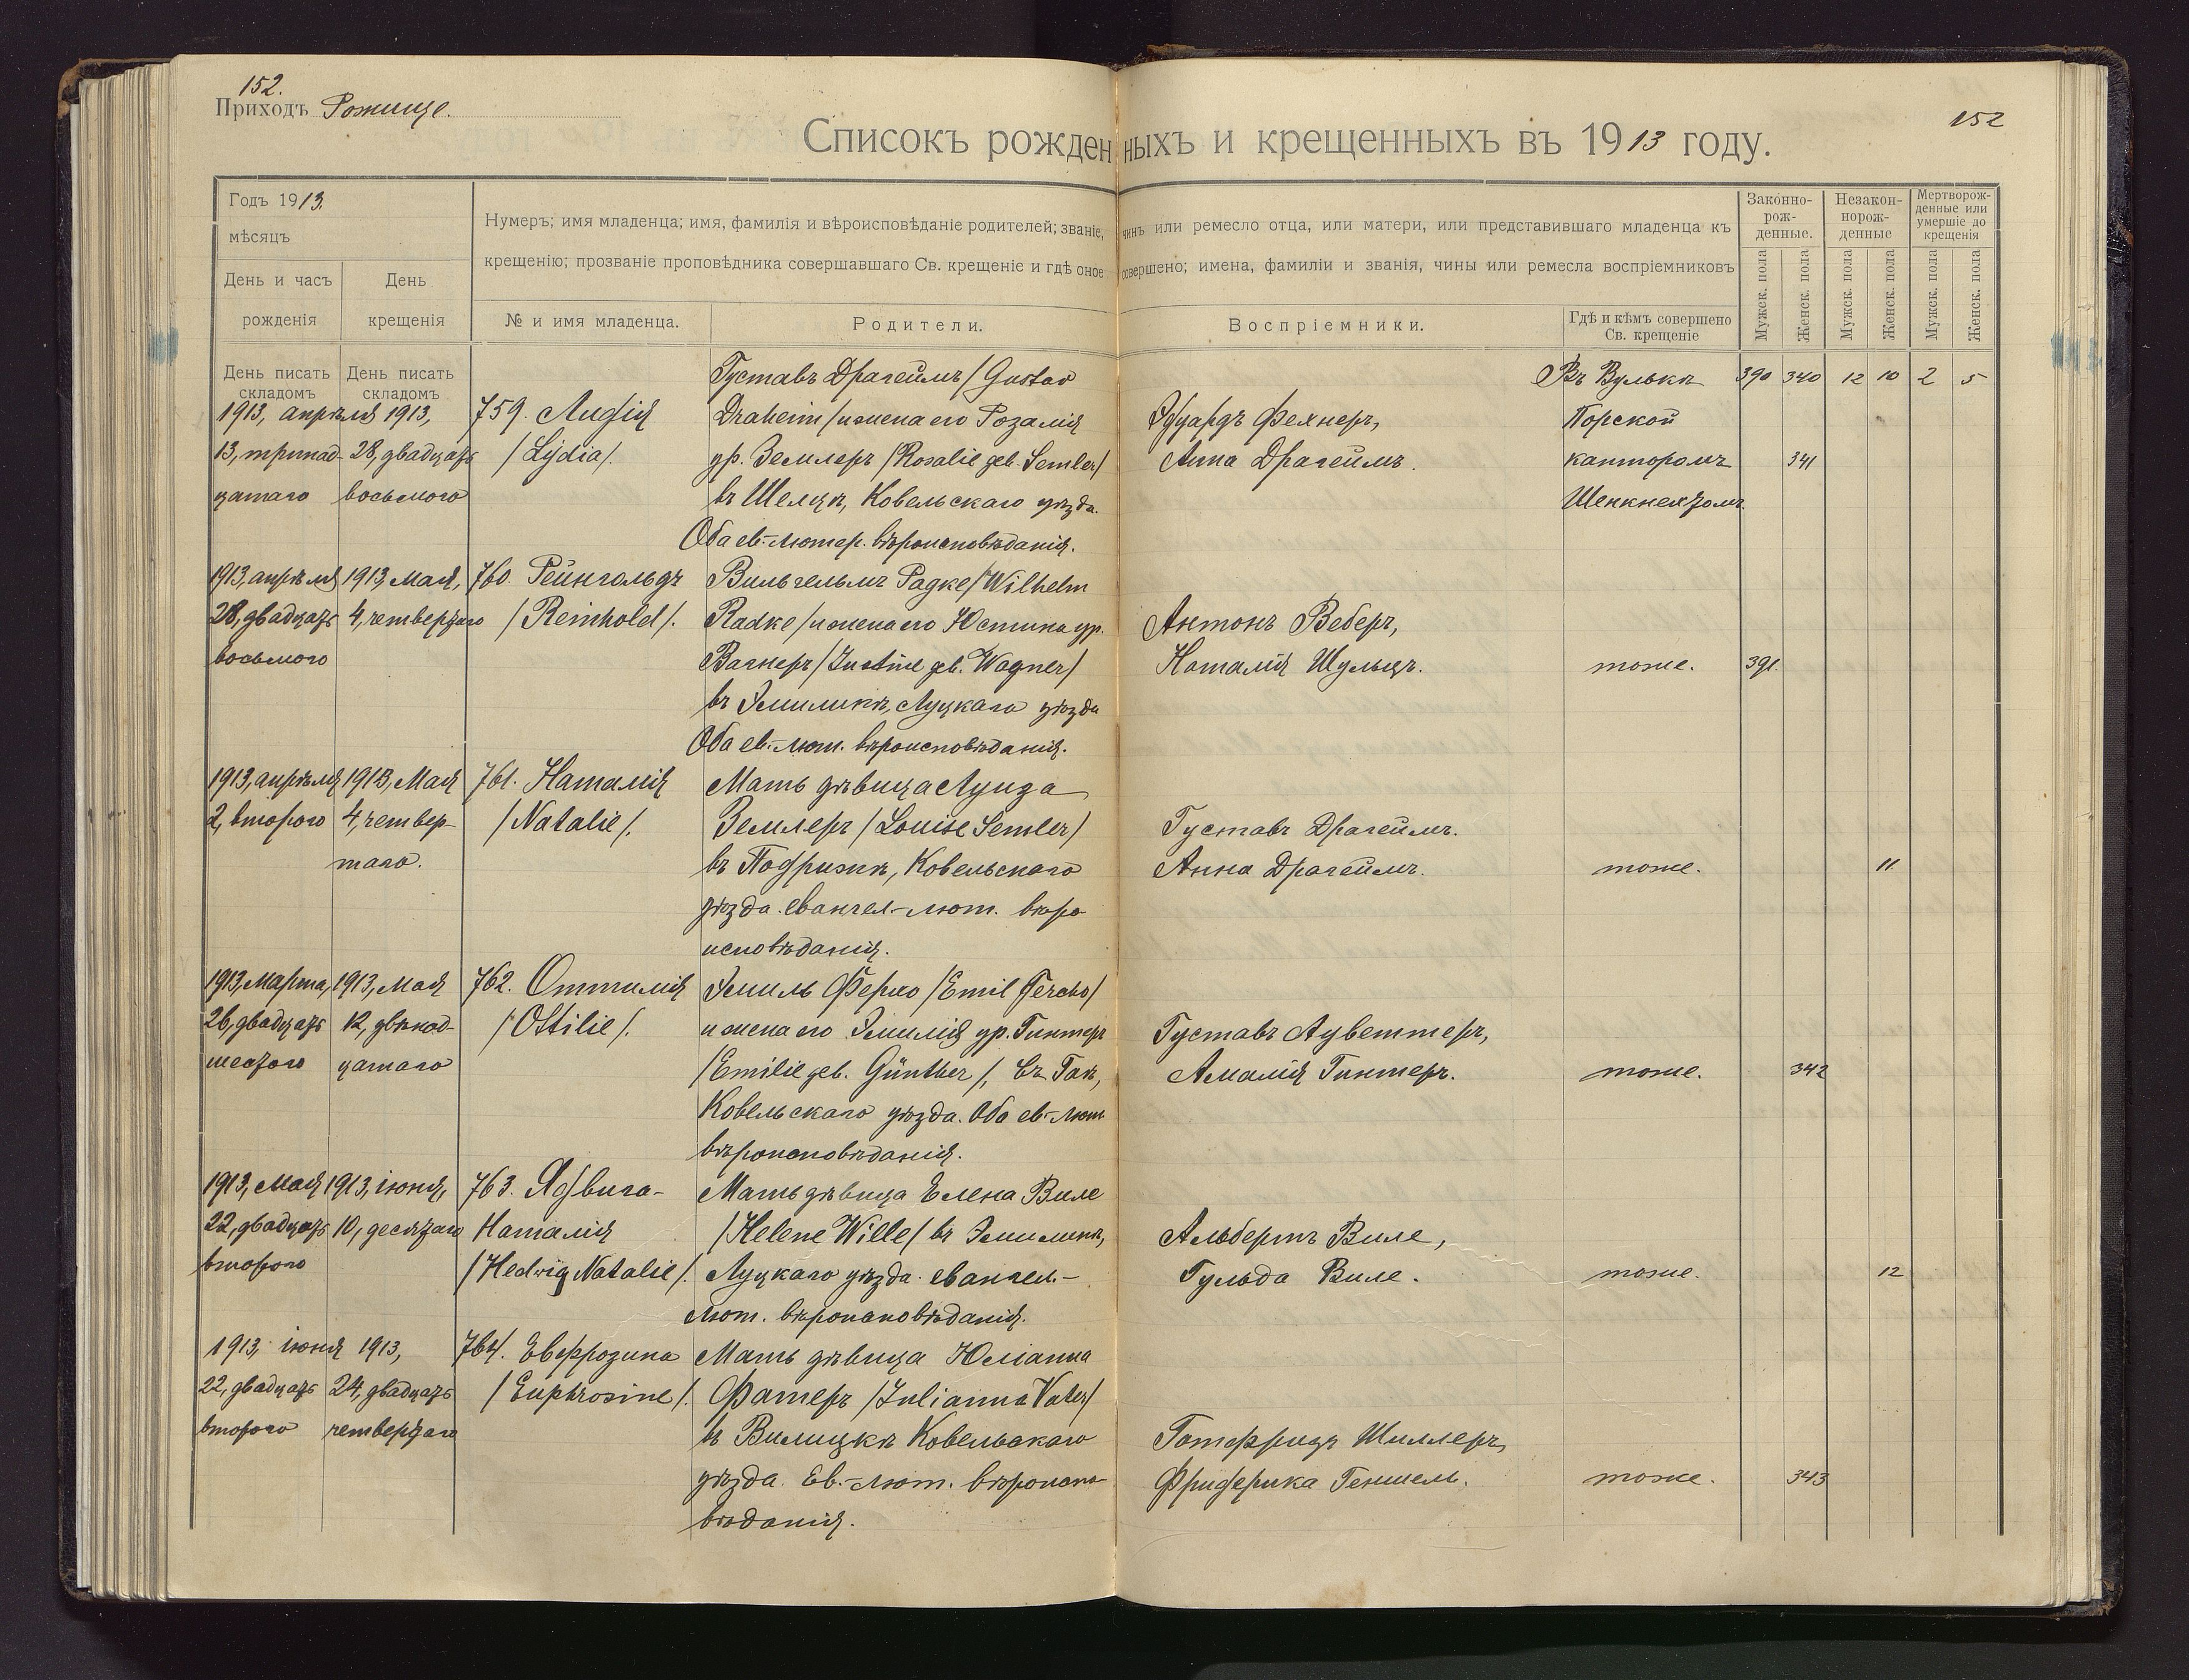 152.
Приходъ Рожище.
152
Списокъ рожденныхъ и крещенныхъ въ 1913 году.
Годъ 1913.
мѣсяцъ
День и часъ рожденія
День крещенія
Нумеръ; имя младенца; имя, фамилія и вѣроисповѣданіе родителей; званіе, чинъ или ремесло отца, или матери, или представившаго младенца къ
крещенію; прозваніе проповѣдника совершавшаго Св. крещеніе и гдѣ оное совершено; имена, фамиліи и званія, чины или ремесла воспріемниковъ
№ и имя младенца.
Родители.
Воспріемники.
Гдѣ и кѣмъ совершено
Св. крещеніе
Законно-
рож-
денные.
Незакон-
норож-
денные
Мертворож-
денные или
умершіе до
крещенія
Мужск. пола
Женск. пола
Мужск. пола
Женск. пола
Мужск. пола
Женск. пола
День писать
складомъ
День писать
складомъ
390 340 12 10 2 5
1913, апрѣля
13, тринад-
цатаго
1913,
28, двадцать
восьмого
759. Лидія
/Lydia/.
Густавъ Драгеймъ /Gustav
Draheim/ и жена его Розалія
ур. Землеръ /Rosalie geb. Semler/
въ Шелцѣ, Ковельскаго уѣзда.
Оба ев.-лютер. вѣроисповѣданія.
Эдуардъ Фехнеръ,
Анна Драгеймъ.
Въ Вулькѣ
Порской
канторомъ
Шенкнехтомъ.
341
1913, апрѣля
28, двадцать
восьмого
1913, мая,
4, четвертаго
760. Рейнгольдъ
/Reinhold/.
Вильгельмъ Радке /Wilhelm
Radke/ и жена его Юстина ур.
Вагнеръ /Justine geb. Wagner/
въ Эмилинѣ, Луцкаго уѣзда
Оба ев.-лют. вѣроисповѣданія.
Антонъ Веберъ,
Наталія Шульцъ.
тоже.
391.
1913, апрѣля
2, второго
1913, Мая
4, четвер-
таго.
761. Наталія
/Natalie/.
Мать дѣвица Луиза
Землеръ /Louise Semler/
въ Подрижѣ, Ковельскаго
уѣзда. евангел.-лют. вѣро
исповѣданія.
Густавъ Драгеймъ.
Анна Драгеймъ.
тоже.
11
1913, Марта,
26, двадцать
шестого
1913, Мая
12, двѣнад-
цатаго
762. Оттилія
/Ottilie/.
Эмиль Ферхо /Emil Fercho/
и жена его Эмилія ур. Гинтеръ
/Emilie geb. Günther/, въ Гаѣ,
Ковельскаго уѣзда. Оба ев.-лют
вѣроисповѣданія.
Густавъ Лудветтеръ,
Амалія Гинтеръ.
тоже.
342
1913, Мая
22, двадцать
второго
1913, іюня,
10, десятаго
763. Ядвига-
Наталія
/Hedwig Natalie/.
Мать дѣвица Елена Виле
/Helene Wille/ въ Эмилинѣ,
Луцкаго уѣзда. евангел.-
лют. вѣроисповѣданія.
Альбертъ Виле,
Гульда Виле.
тоже.
12
1913, іюня
22, двадцать
второго
1913,
24, двадцать
четвертаго
764. Евфрозина
/Euphrosine/.
Мать дѣвица Юліанна
Фатеръ /Julianna Vater/
въ Вилицкѣ Ковельскаго
уѣзда. Ев.-лют. вѣроиспо-
вѣданія.
Готфридъ Шиллеръ,
Фридерика Геншель.
тоже.
343